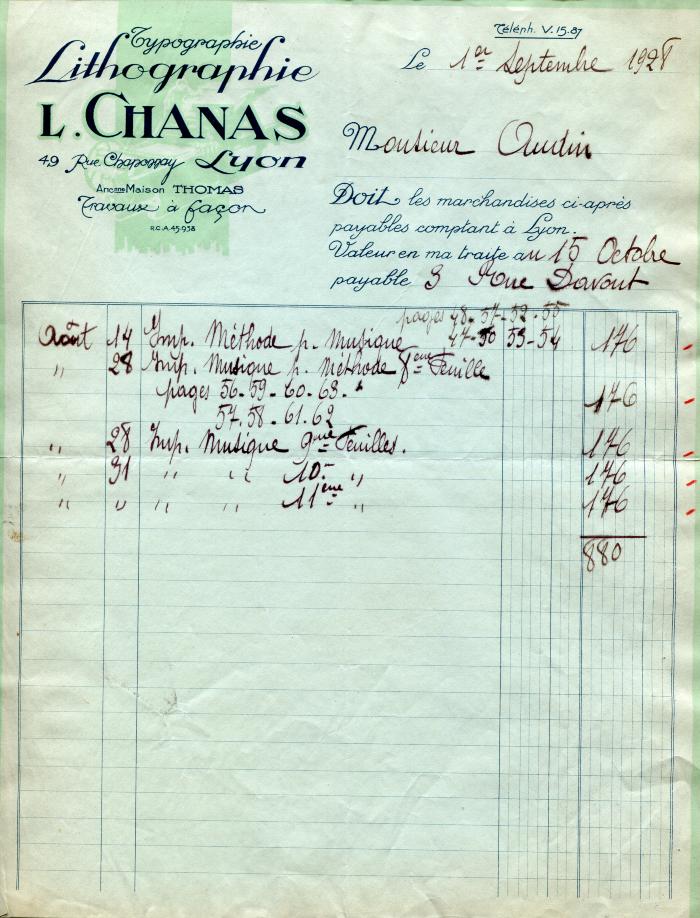 Téléph. V.15.87
Typographie
Lithographie
L. CHANAS
49 Rue Chaponnay Lyon
Ancnne Maison THOMAS
Travaux à façon
R.C.A.45.938
Le 1er Septembre 1928
Monsieur Audin
Doit les marchandises ci-après
payables comptant à Lyon.
Valeur en ma traite au 15 Octobre
payable 3 Rue Davout
pages 48-57-52-55
Août 14 Imp. Méthode p. Musique 47-50 53-54 176
" 28 Imp. Musique p. Méthode 8ème Feuille
pages 56.59.60.63. " 176
57.58.61.62
" 28 Imp. Musique 9me Feuilles. 176
" 31 " " 10- " 176
" " " " 11ème " 176
880